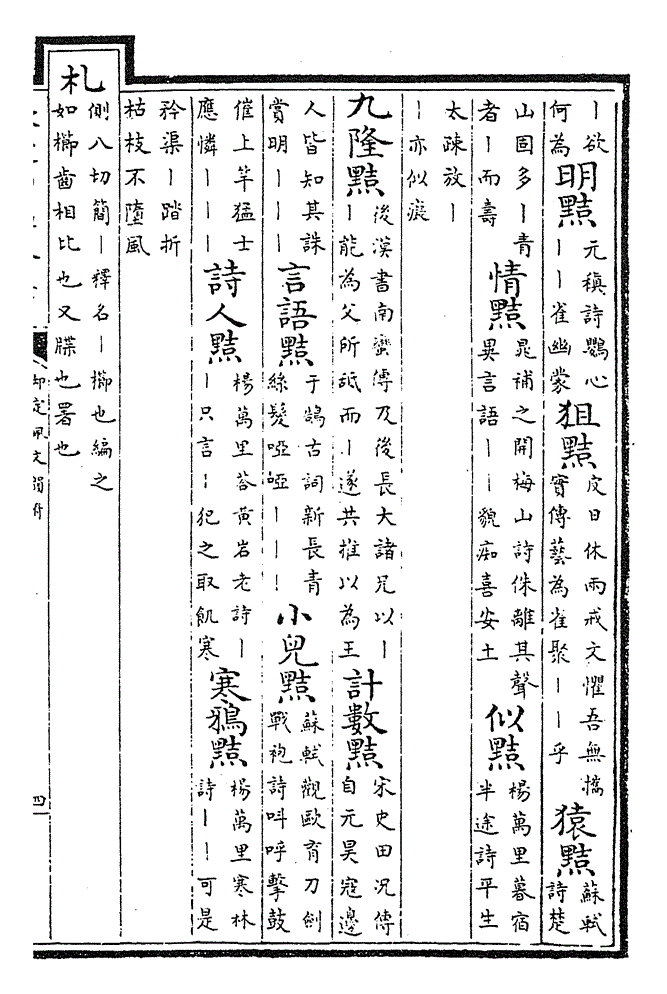 丨欲
何為
明黠
元稹詩鸚心
丨丨雀幽蒙
狙黠
皮日休雨戒文懼吾無搞
實傳藝為雀聚丨丨乎
猿黠
蘇軾
詩楚
山固多丨青
者丨而壽
情黠
晁補之開梅山詩侏離其聲
異言語丨丨貌痴喜安土
似黠
楊萬里暮宿
半途詩平生
太疎放丨
丨亦似癡
九隆黠
後漢書南蠻傳及後長大諸兄以丨
丨能為父所舐而丨遂共推以為王
計數黠
宋史田况傳
自元昊寇邊
人皆知其誅
賞明丨丨丨
言語黠
于鵠古詞新長青
絲髮啞啞丨丨丨
小兒黠
蘇軾觀歐育刀劍
戰袍詩呌呼擊鼓
催上竿猛士
應憐丨丨丨
詩人黠
楊萬里荅黄岩老詩丨
丨只言丨犯之取飢寒
寒鴉黠
楊萬里寒林
詩丨丨可是
矜渠丨踏折
枯枝不墮風
札
側八切簡丨釋名丨櫛也編之
如櫛齒相比也又牒也署也
御定佩文韻府
四一